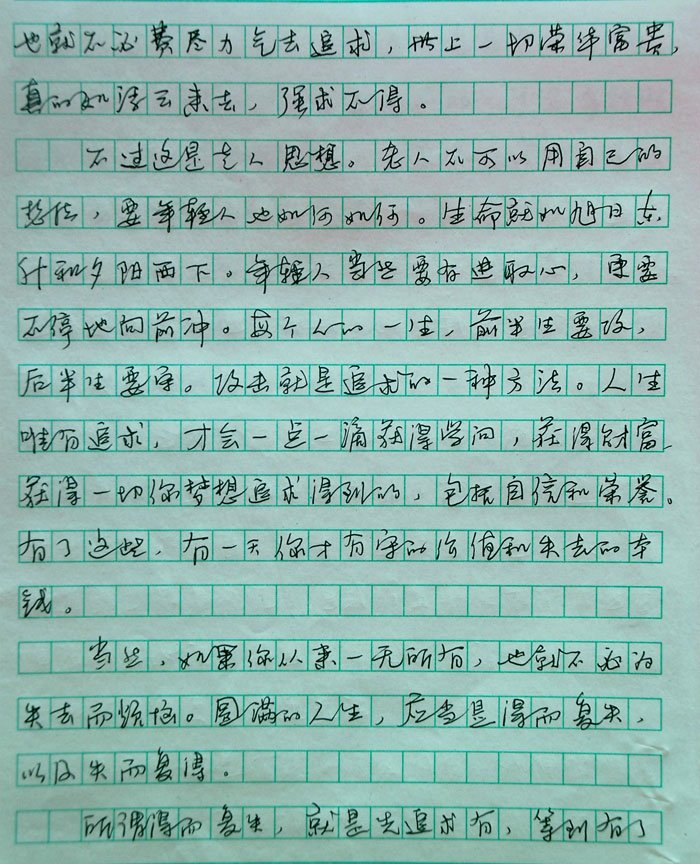 也就不必费尽力气去追求，世上一切荣华富贵，
真的如浮云来去，强求不得。
不过这是老人思想。老人不可以用自己的
想法，要年轻人也如何如何。生命就如旭日东
升和夕阳西下。年轻人当然要有进取心，更要
不停地向前冲。每个人的一生，前半生要攻，
后半生要守。攻击就是追求的一种方法。人生
唯有追求，才会一点一滴获得学问，获得财富，
获得一切你梦想追求得到的，包括自信和荣誉。
有了这些，有一天你才有守的价值和失去的本
钱。
当然，如果你从来一无所有，也就不必为
失去而烦恼。圆满的人生，应当是得而复失，
以及失而复得。
所谓得而复失，就是先追求有，等到有了